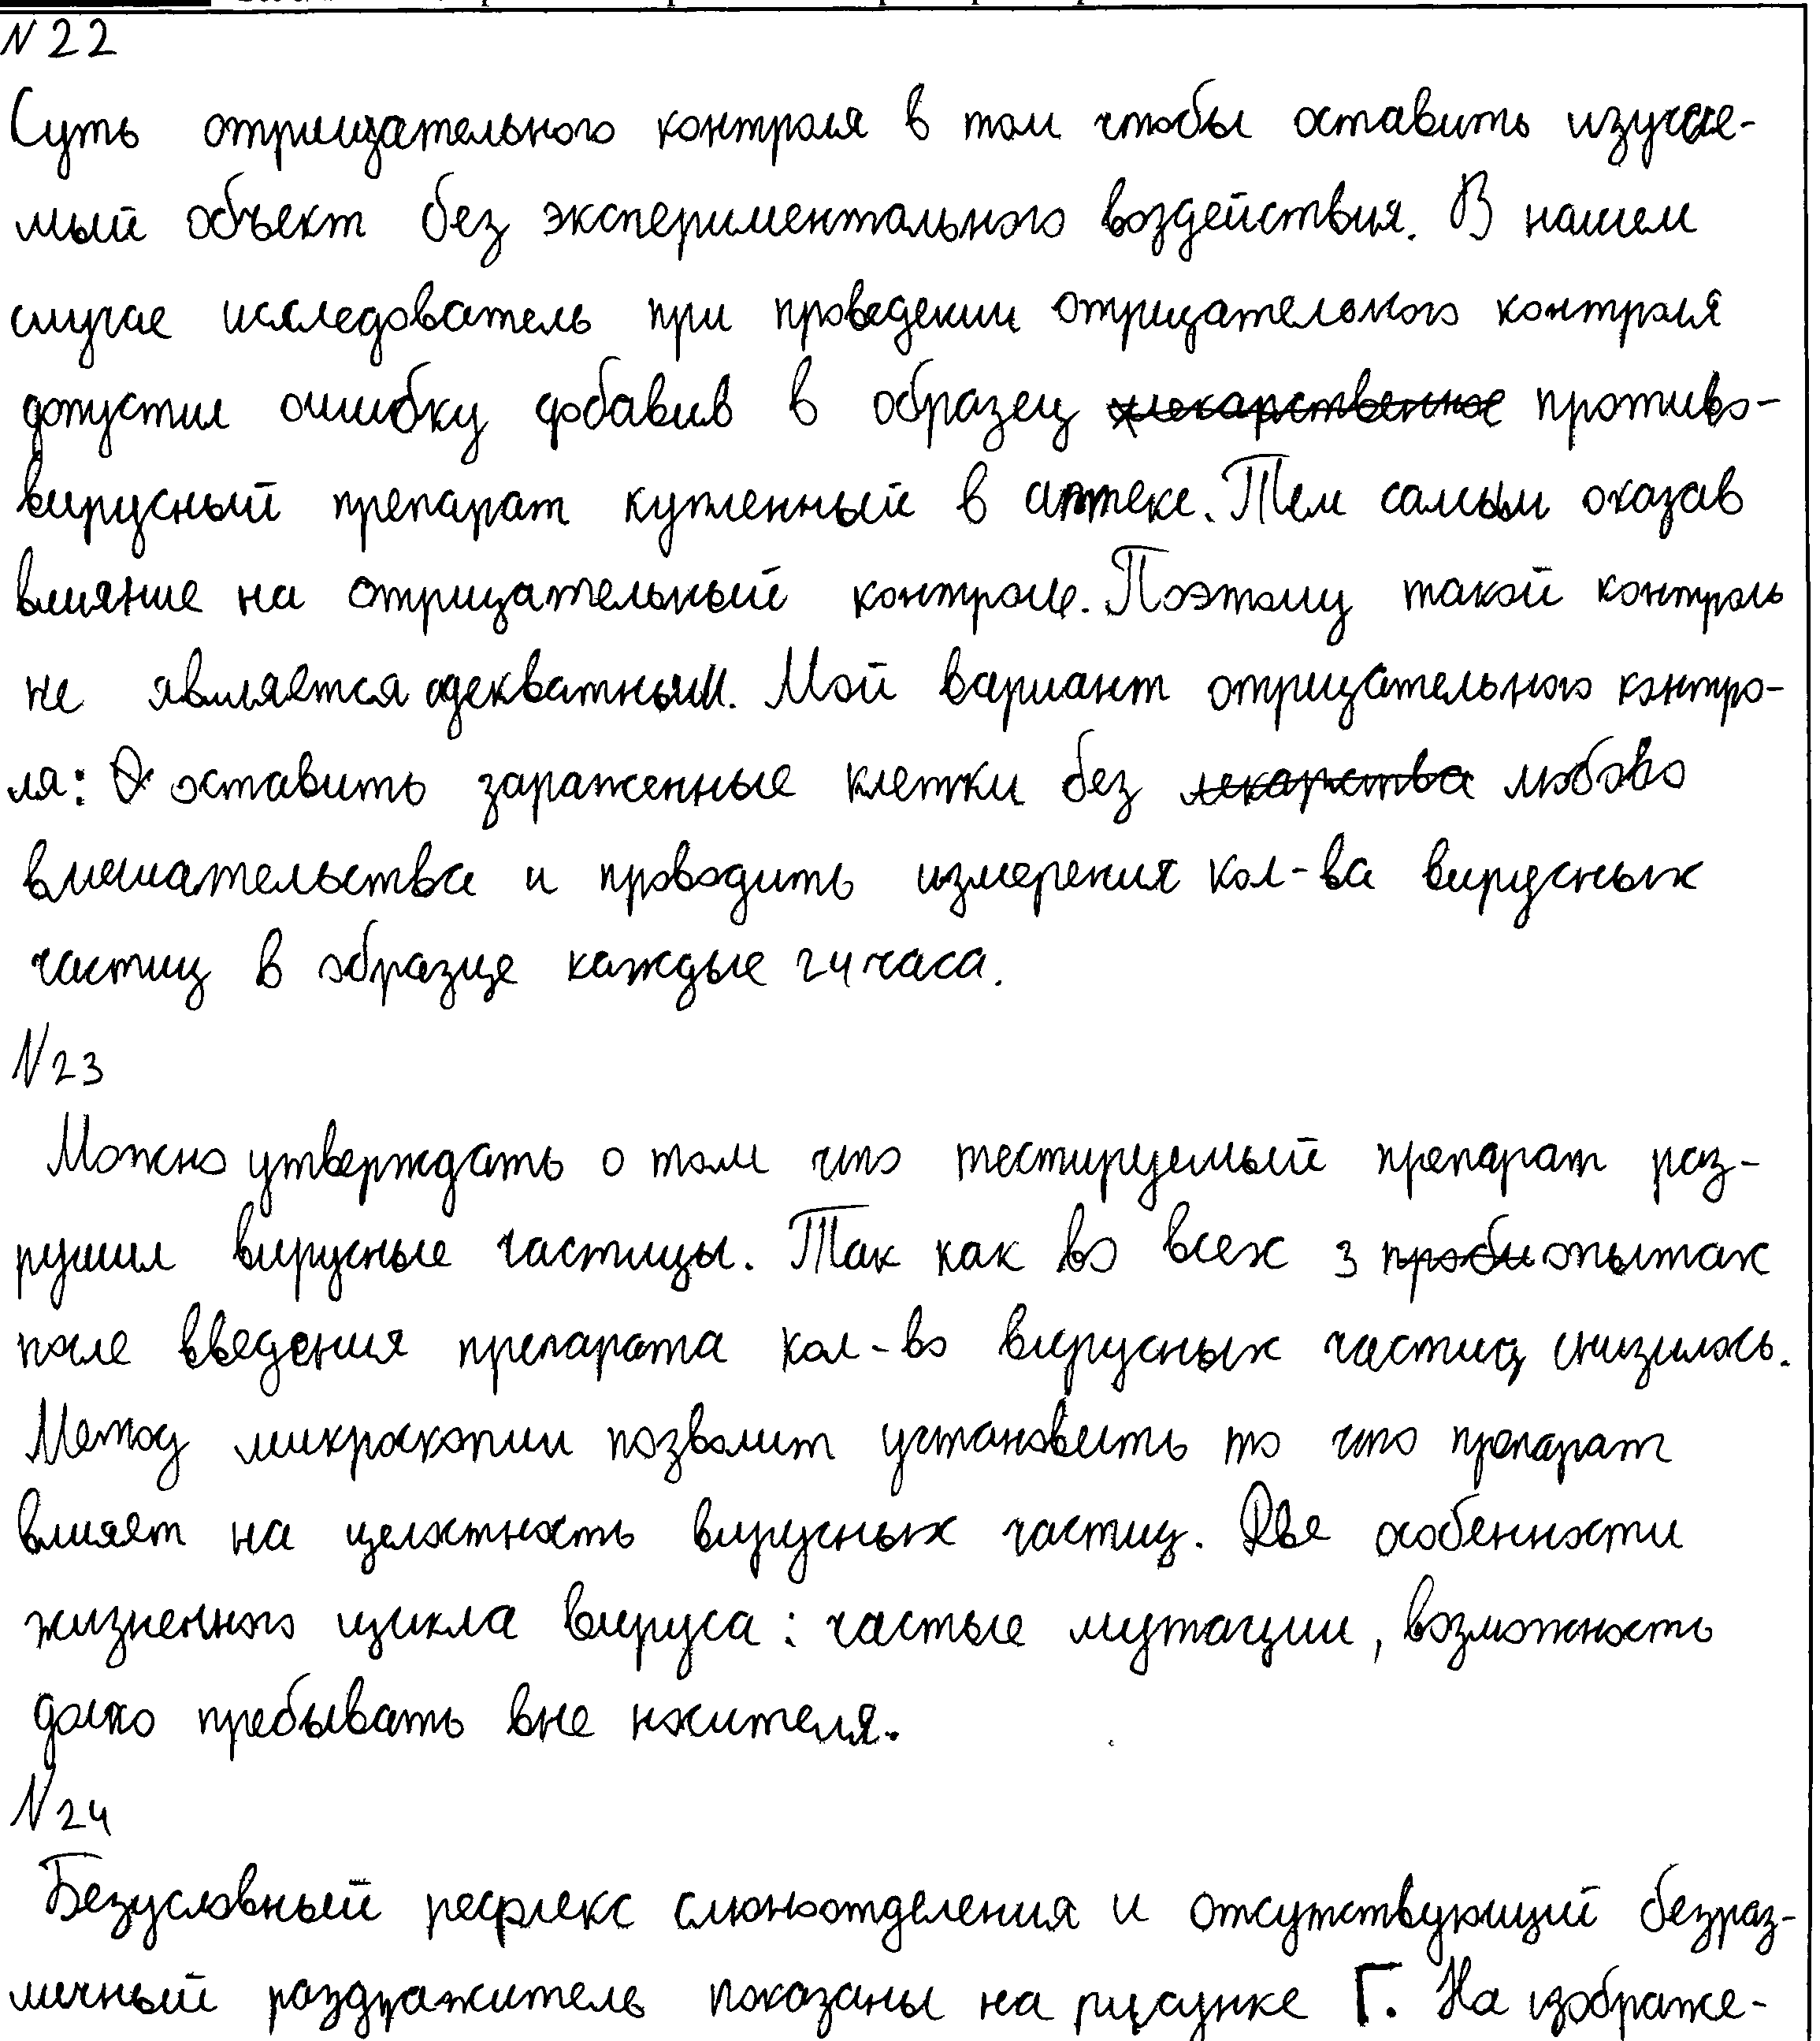 N 22
Суть отрицательного контроля в том чтобы оставить изучае-
мый объект без экспериментального воздействия. В нашем
случае исследователь при проведении отрицательного контроля
допустил ошибку добавив в образец лекарственное противо-
вирусный препарат купленный в аптеке. Тем самым оказав
влияние на отрицательный контроль. Поэтому такой контроль
не является адекватным. Мой вариант отрицательного контро-
ля: оставить зараженные клетки без лекарства любого
вмешательства и проводить измерения кол-ва вирусных
частиц в образце каждые 24 часа.
N 23
Можно утверждать о том что тестируемый препарат раз-
рушил вирусные частицы. Так как во всех 3 проби опытах
после введения препарата кол-во вирусных частиц снизилось.
Метод микроскопии позволит установить то что препарат
влияет на целостность вирусных частиц. Две особенности
жизненного цикла вируса: частые мутации, возможность
долго пребывать вне носителя.
N 24
Безусловный рефлекс слюноотделения и отсутствующий безраз-
личный раздражитель показаны на рисунке Г. На изображе-